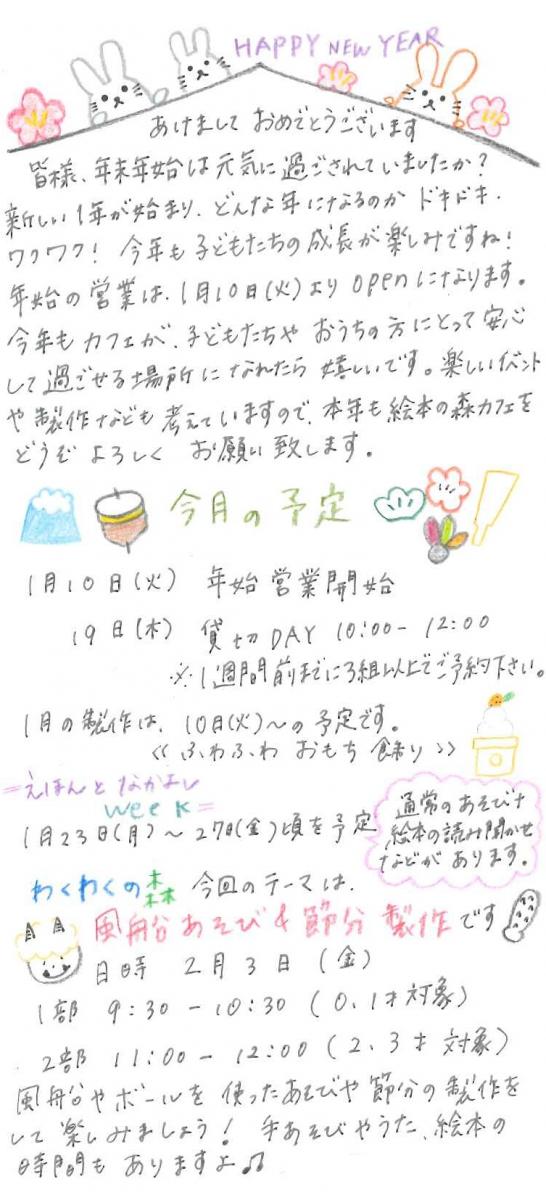 HAPPY NEW YEAR
あけまして おめでとうございます
皆様、年末年始は元気に過ごされていましたか?
新しい1年が始まり、どんな年になるのか ドキドキ・
ワクワク! 今年も子どもたちの成長が楽しみですね!
年始の営業は、1月10日(火)より openになります。
今年も カフェが、子どもたちや おうちの方にとって安心
して過ごせる場所になれたら嬉しいです。楽しいイベント
や製作なども考えていますので、本年も絵本の森カフェを
どうぞ よろしく お願い致します。
今月の予定
1月10日(火) 年始営業開始
19日(木) 貸切DAY 10:00- 12:00
※1週間前までに3組以上でご予約下さい。
1月の製作は、10日(火)~の予定です。
<< ふわふわ おもち 飾り >>
=えほんと なかよし
week=
1月23日(月)~27日(金)頃を予定
通常のあそびや
絵本の読み聞かせ
などがあります。
わくわくの森 今回のテーマは、
風船あそび&節分製作です
日時 2月3日(金)
1部 9:30-10:30(0、1才対象)
2部 11:00-12:00(2、3才対象)
風船やボールを使ったあそびや節分の製作を
して楽しみましょう! 手あそびやうた、絵本の
時間もありますよ♫